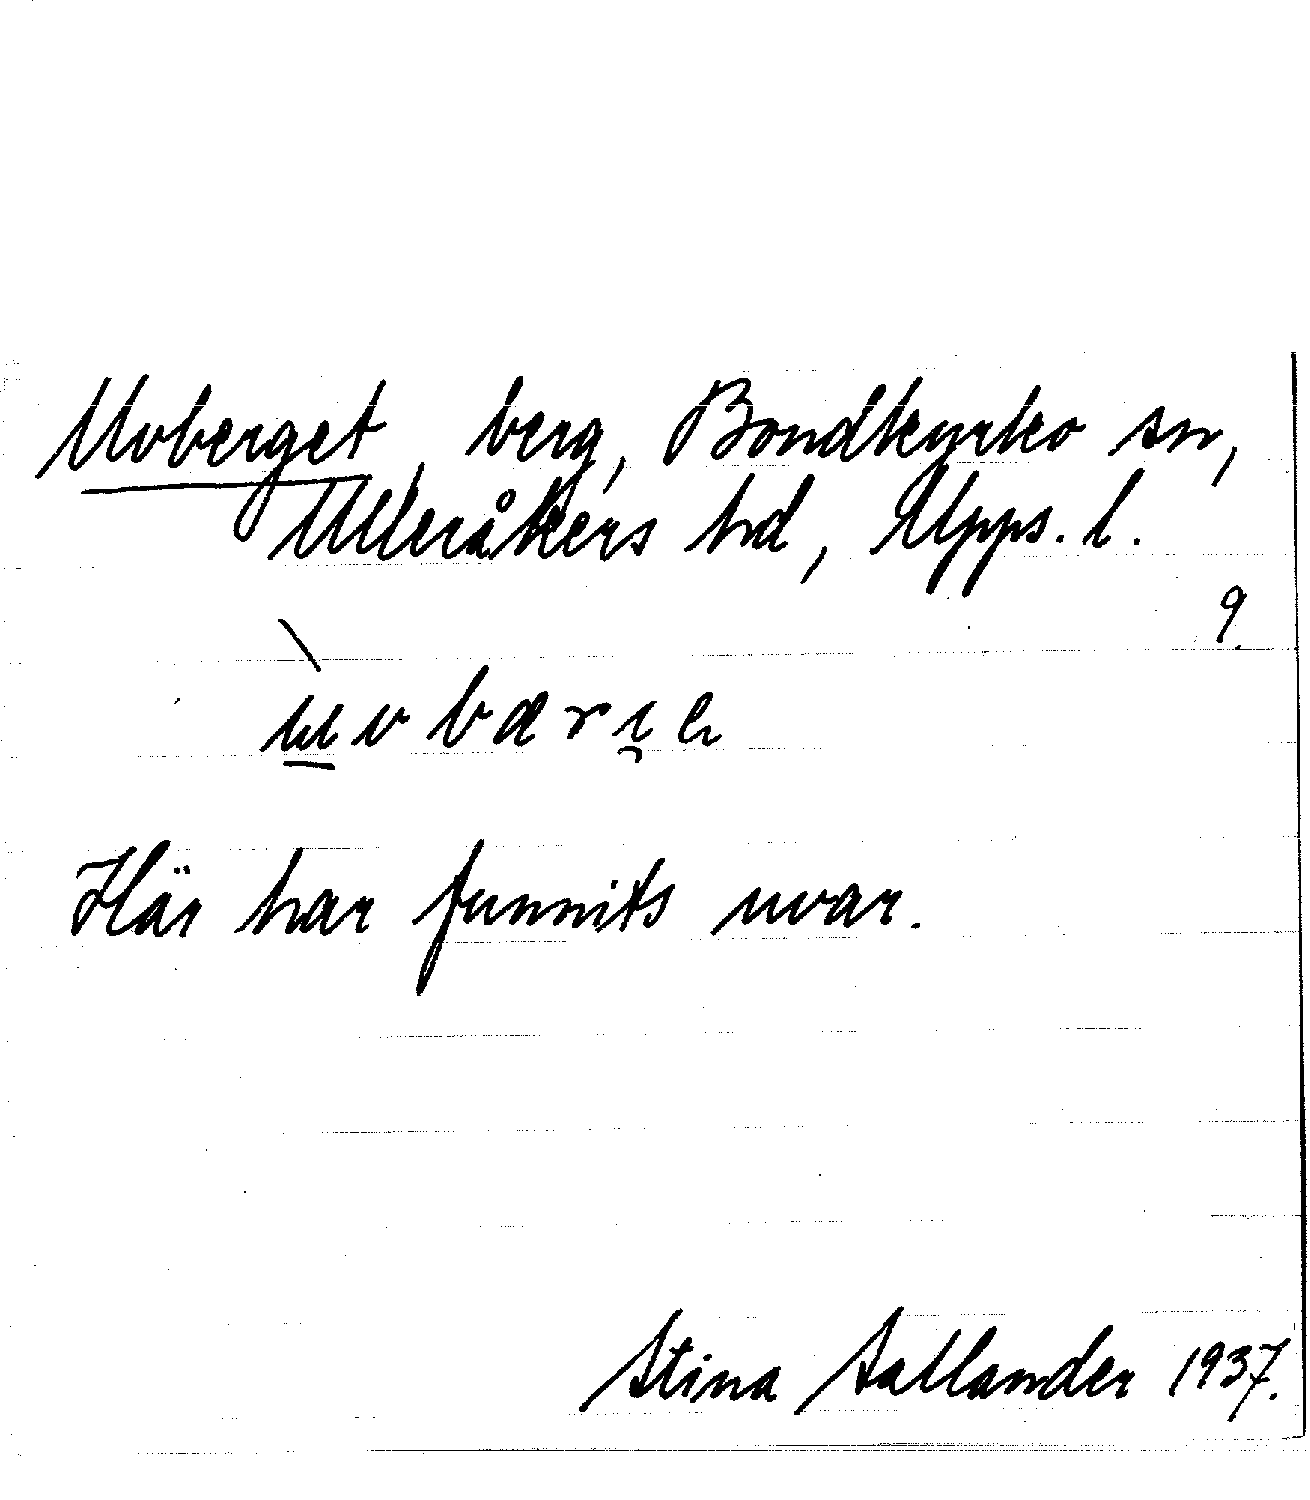 Uvberget, berg, Bondkyrko sn,
Ulleråkers hd, Upps. l.
9.
Här har funnits uvar.
Stina Sallander 1937.